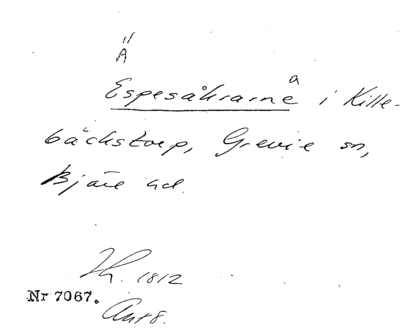 Ä
a
Espesåkrarne i Kille-
bäckstorp, Grevie sn,
Bjäre hd.
1812
Nr 7067.